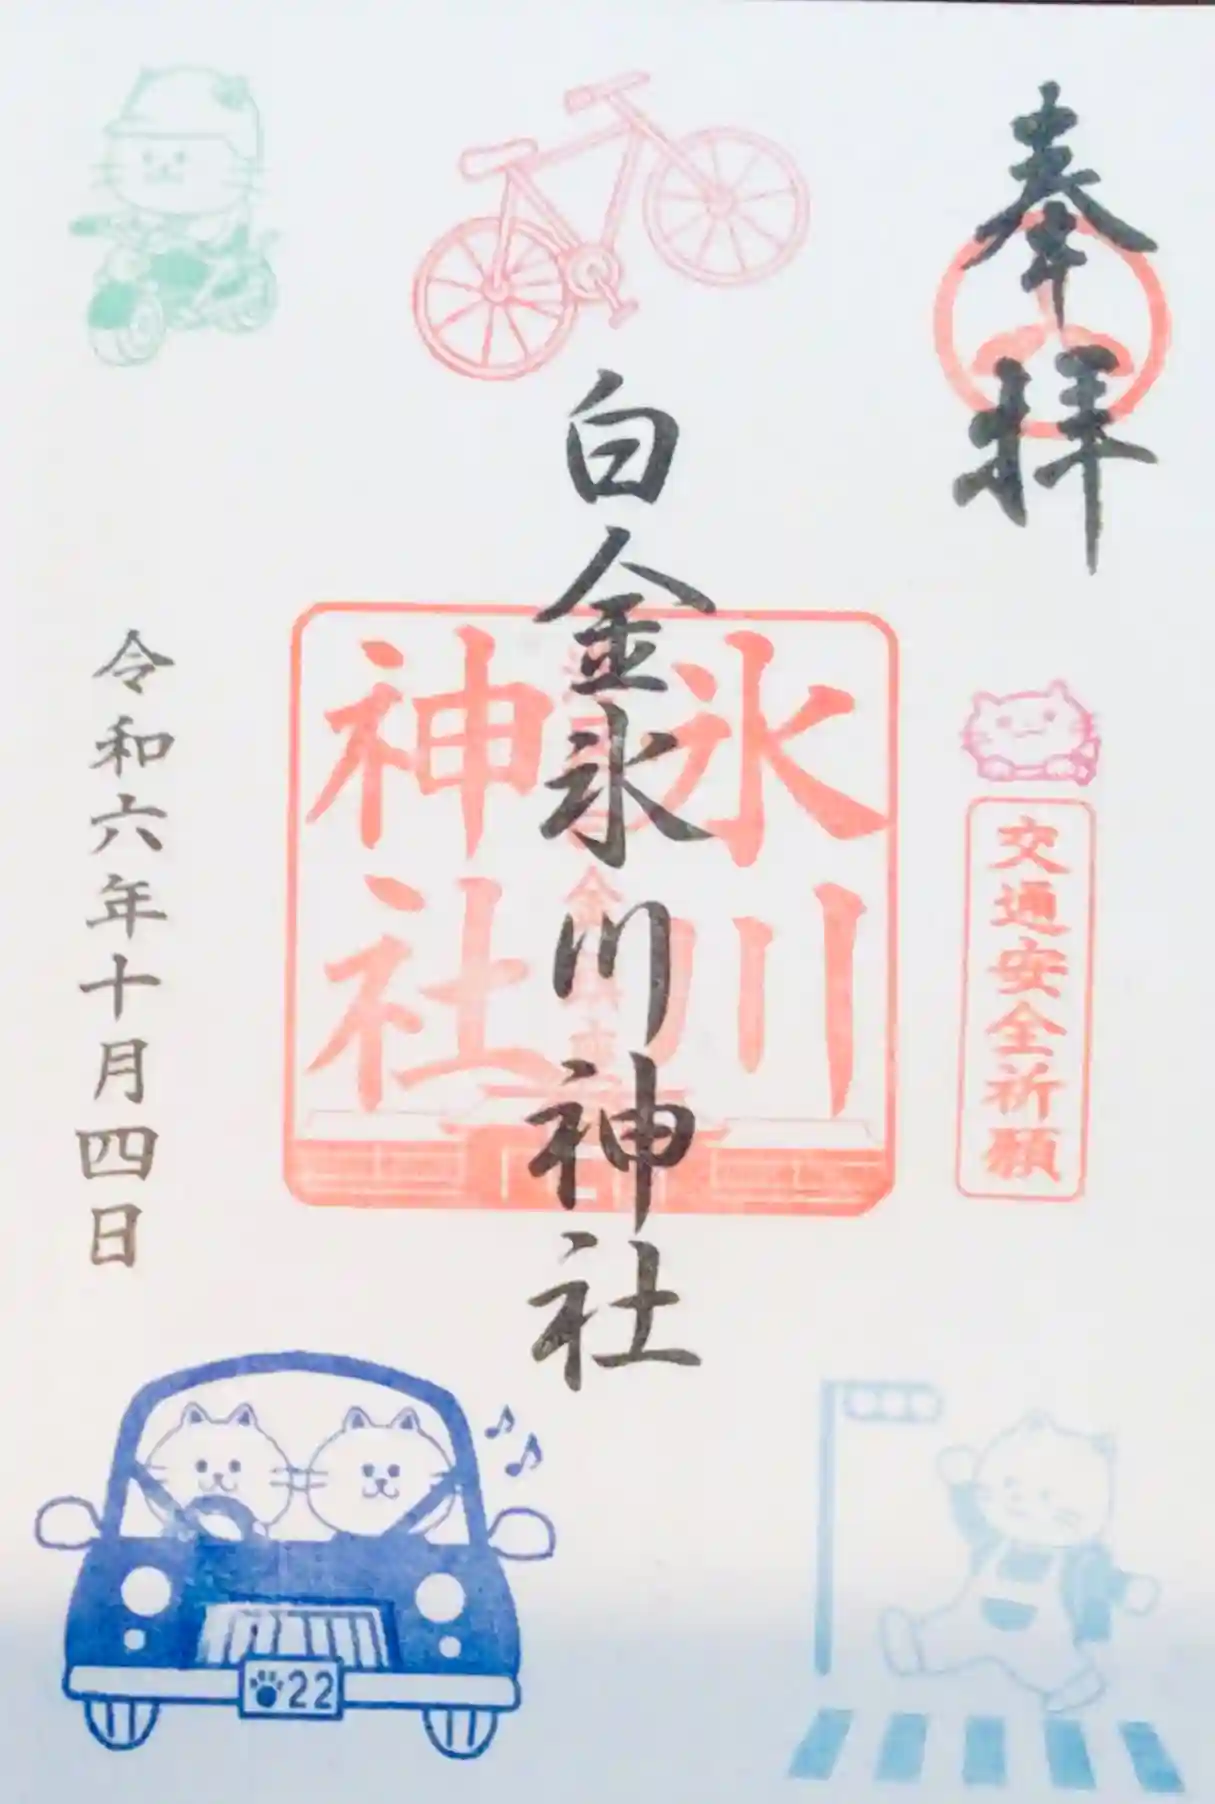 奉拝
交通安全祈願
白金氷川神社
氷川
神社
令和六年十月四日
22